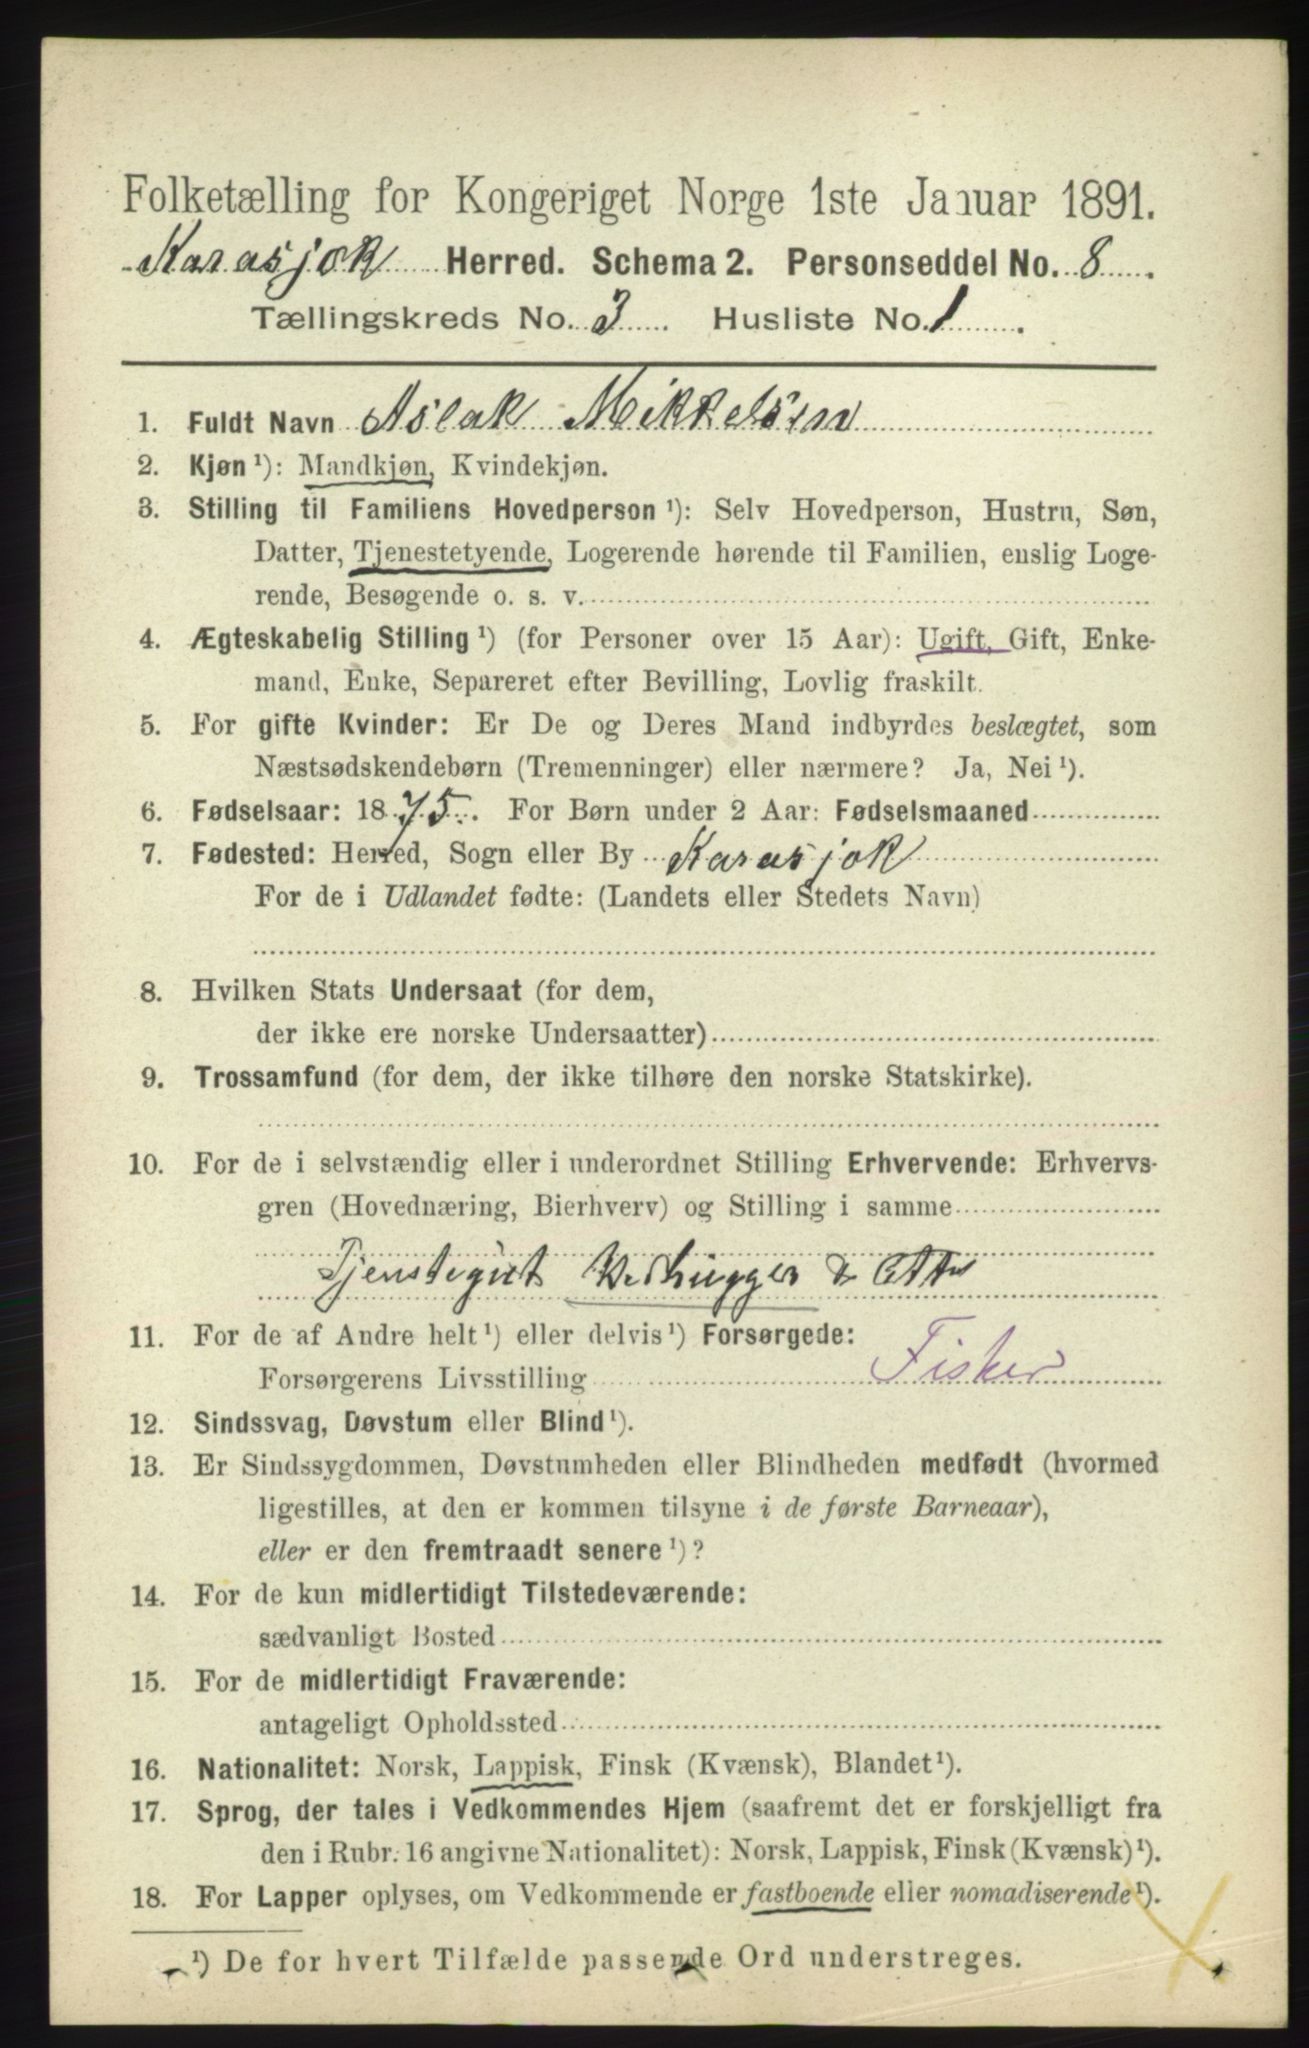 Folketælling for Kongeriget Norge 1ste Januar 1891.
Karasjok Herred. Schema 2. Personseddel No. 8.
Tællingskreds No. 3 Husliste No. 1.
1. Fuldt Navn Aslak Mikkelsen
2. Kjøn ¹): Mandkjøn, Kvindekjøn.
3. Stilling til Familiens Hovedperson ¹): Selv Hovedperson, Hustru, Søn,
Datter, Tjenestetyende, Logerende hørende til Familien, enslig Loge-
rende, Besøgende o. s. v.
4. Ægteskabelig Stilling ¹) (for Personer over 15 Aar): Ugift, Gift, Enke-
mand, Enke, Separeret efter Bevilling, Lovlig fraskilt.
5. For gifte Kvinder: Er De og Deres Mand indbyrdes beslægtet, som
Næstsødskendebørn (Tremenninger) eller nærmere? Ja, Nei ¹).
6. Fødselsaar: 1875. For Børn under 2 Aar: Fødselsmaaned
7. Fødested: Herred, Sogn eller By Karasjok
For de i Udlandet fødte: (Landets eller Stedets Navn)
8. Hvilken Stats Undersaat (for dem,
der ikke ere norske Undersaatter)
9. Trossamfund (for dem, der ikke tilhøre den norske Statskirke).
10. For de i selvstændig eller i underordnet Stilling Erhvervende: Erhvervs-
gren (Hovednæring, Bierhverv) og Stilling i samme
Tjenstegut Vedhugger &
11. For de af Andre helt ¹) eller delvis ¹) Forsørgede:
Forsørgerens Livsstilling Fisker
12. Sindssvag, Døvstum eller Blind ¹).
13. Er Sindssygdommen, Døvstumheden eller Blindheden medfødt (hvormed
ligestilles, at den er kommen tilsyne i de første Barneaar),
eller er den fremtraadt senere ¹)?
14. For de kun midlertidigt Tilstedeværende:
sædvanligt Bosted
15. For de midlertidigt Fraværende:
antageligt Opholdssted
16. Nationalitet: Norsk, Lappisk, Finsk (Kvænsk), Blandet ¹).
17. Sprog, der tales i Vedkommendes Hjem (saafremt det er forskjelligt fra
den i Rubr. 16 angivne Nationalitet): Norsk, Lappisk, Finsk (Kvænsk) ¹).
18. For Lapper oplyses, om Vedkommende er fastboende eller nomadiserende ¹).
¹) De for hvert Tilfælde passende Ord understreges.